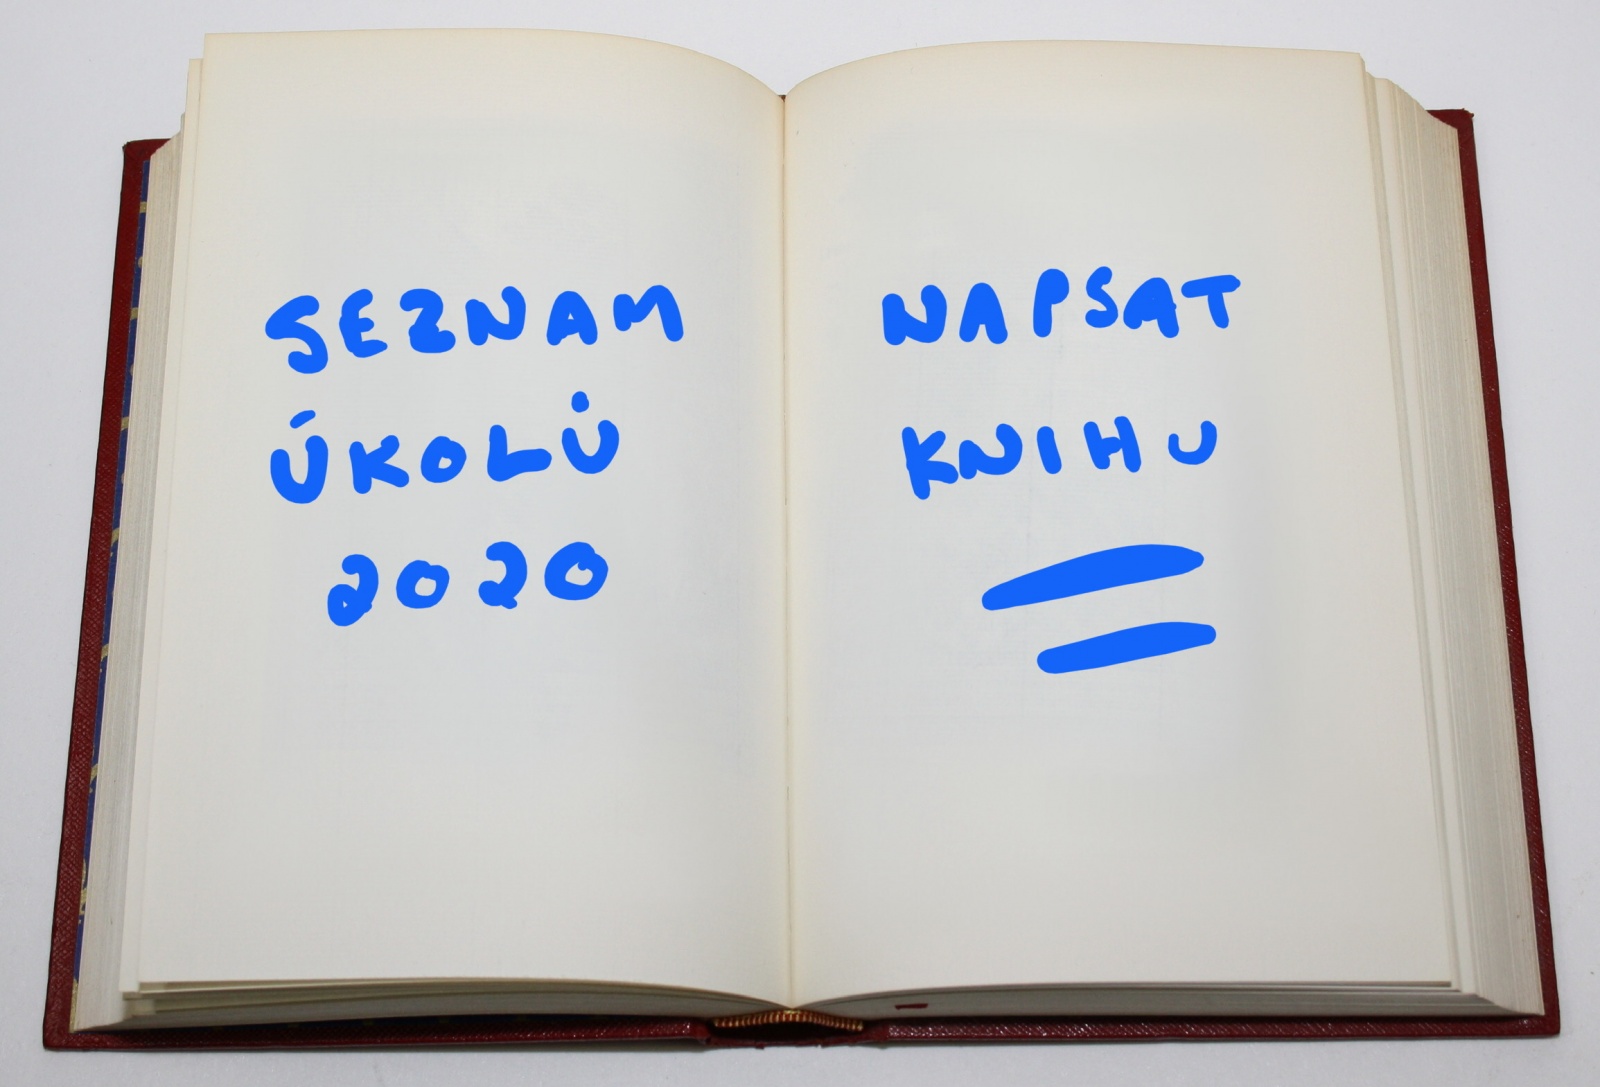 SEZNAM
ÚKOLŮ
2020
NAPSAT
KNIHU